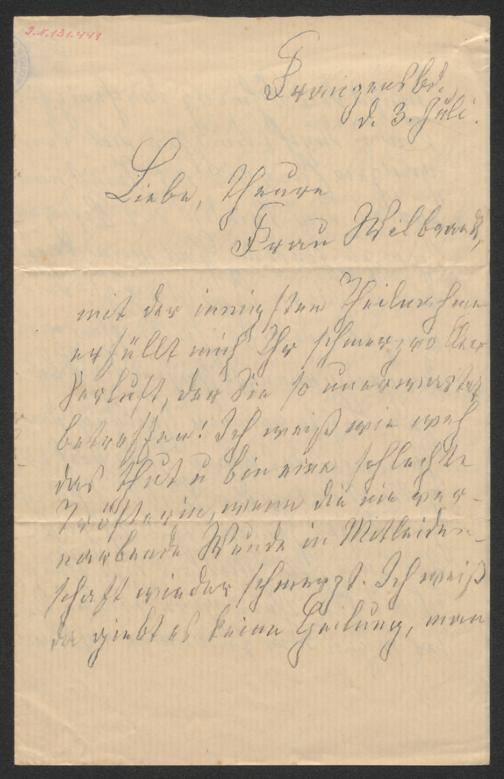 I.N.131.449
Franzensbd.
d. 3. Juli.
Liebe, theure
Frau Wilbrandt,
mit der innigsten Theilnahme
erfüllt mich Ihr schmerzvoller
Verlust, der Sie so unerwartet
betroffen! Ich weiß wie weh
das thut u bin eine schlechte
Trösterin, wenn die nie ver-
narbende Wunde in Mitleiden-
schaft wieder schmerzt. Ich weiß
da giebt es keine Heilung, man